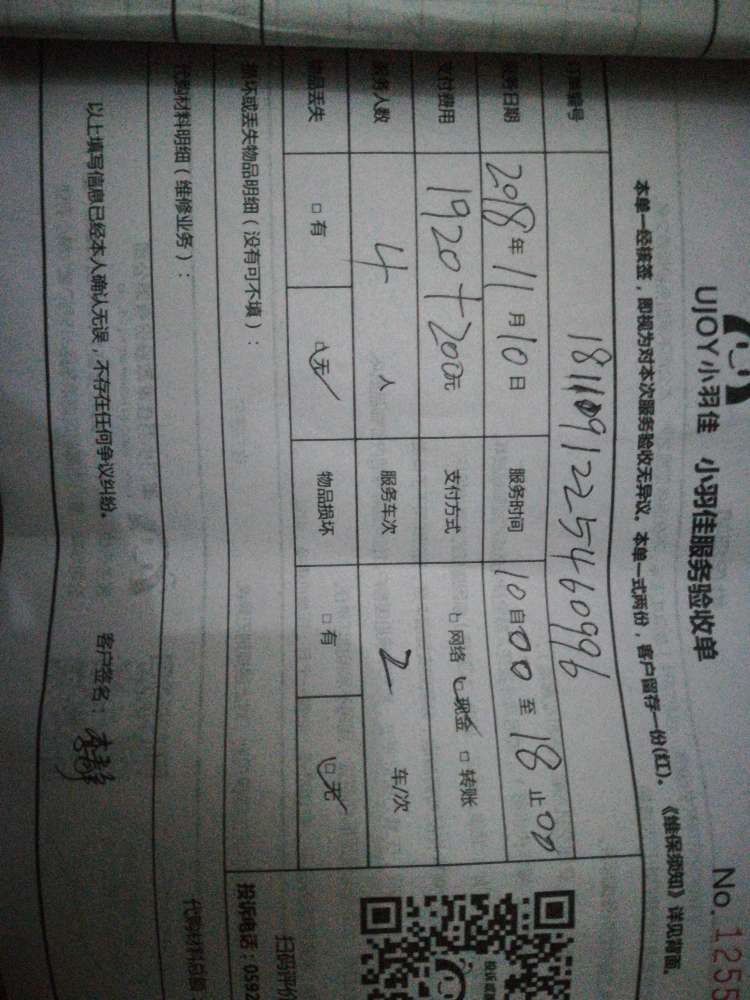 UJOY小羽佳 小羽佳服务验收单 No.1255
本单一经接签，即视为对本次服务验收无异议。本单一式两份，客户留存一份(红)。《维保须知》详见背面。
订单编号 1811091225460996
服务日期 2018年11月10日 服务时间 10自00至18止00
支付费用 1920+200元 支付方式 网络 现金 □转账
服务人数 4人 服务车次 2车/次
物品丢失 □有 □无 物品损坏 □有 □无
损坏或丢失物品明细（没有可不填）：
代购材料明细（维修业务）：
以上填写信息已经本人确认无误，不存在任何争议纠纷。 客户签名：
投诉
扫码评价
投诉电话：0592
代购材料总额